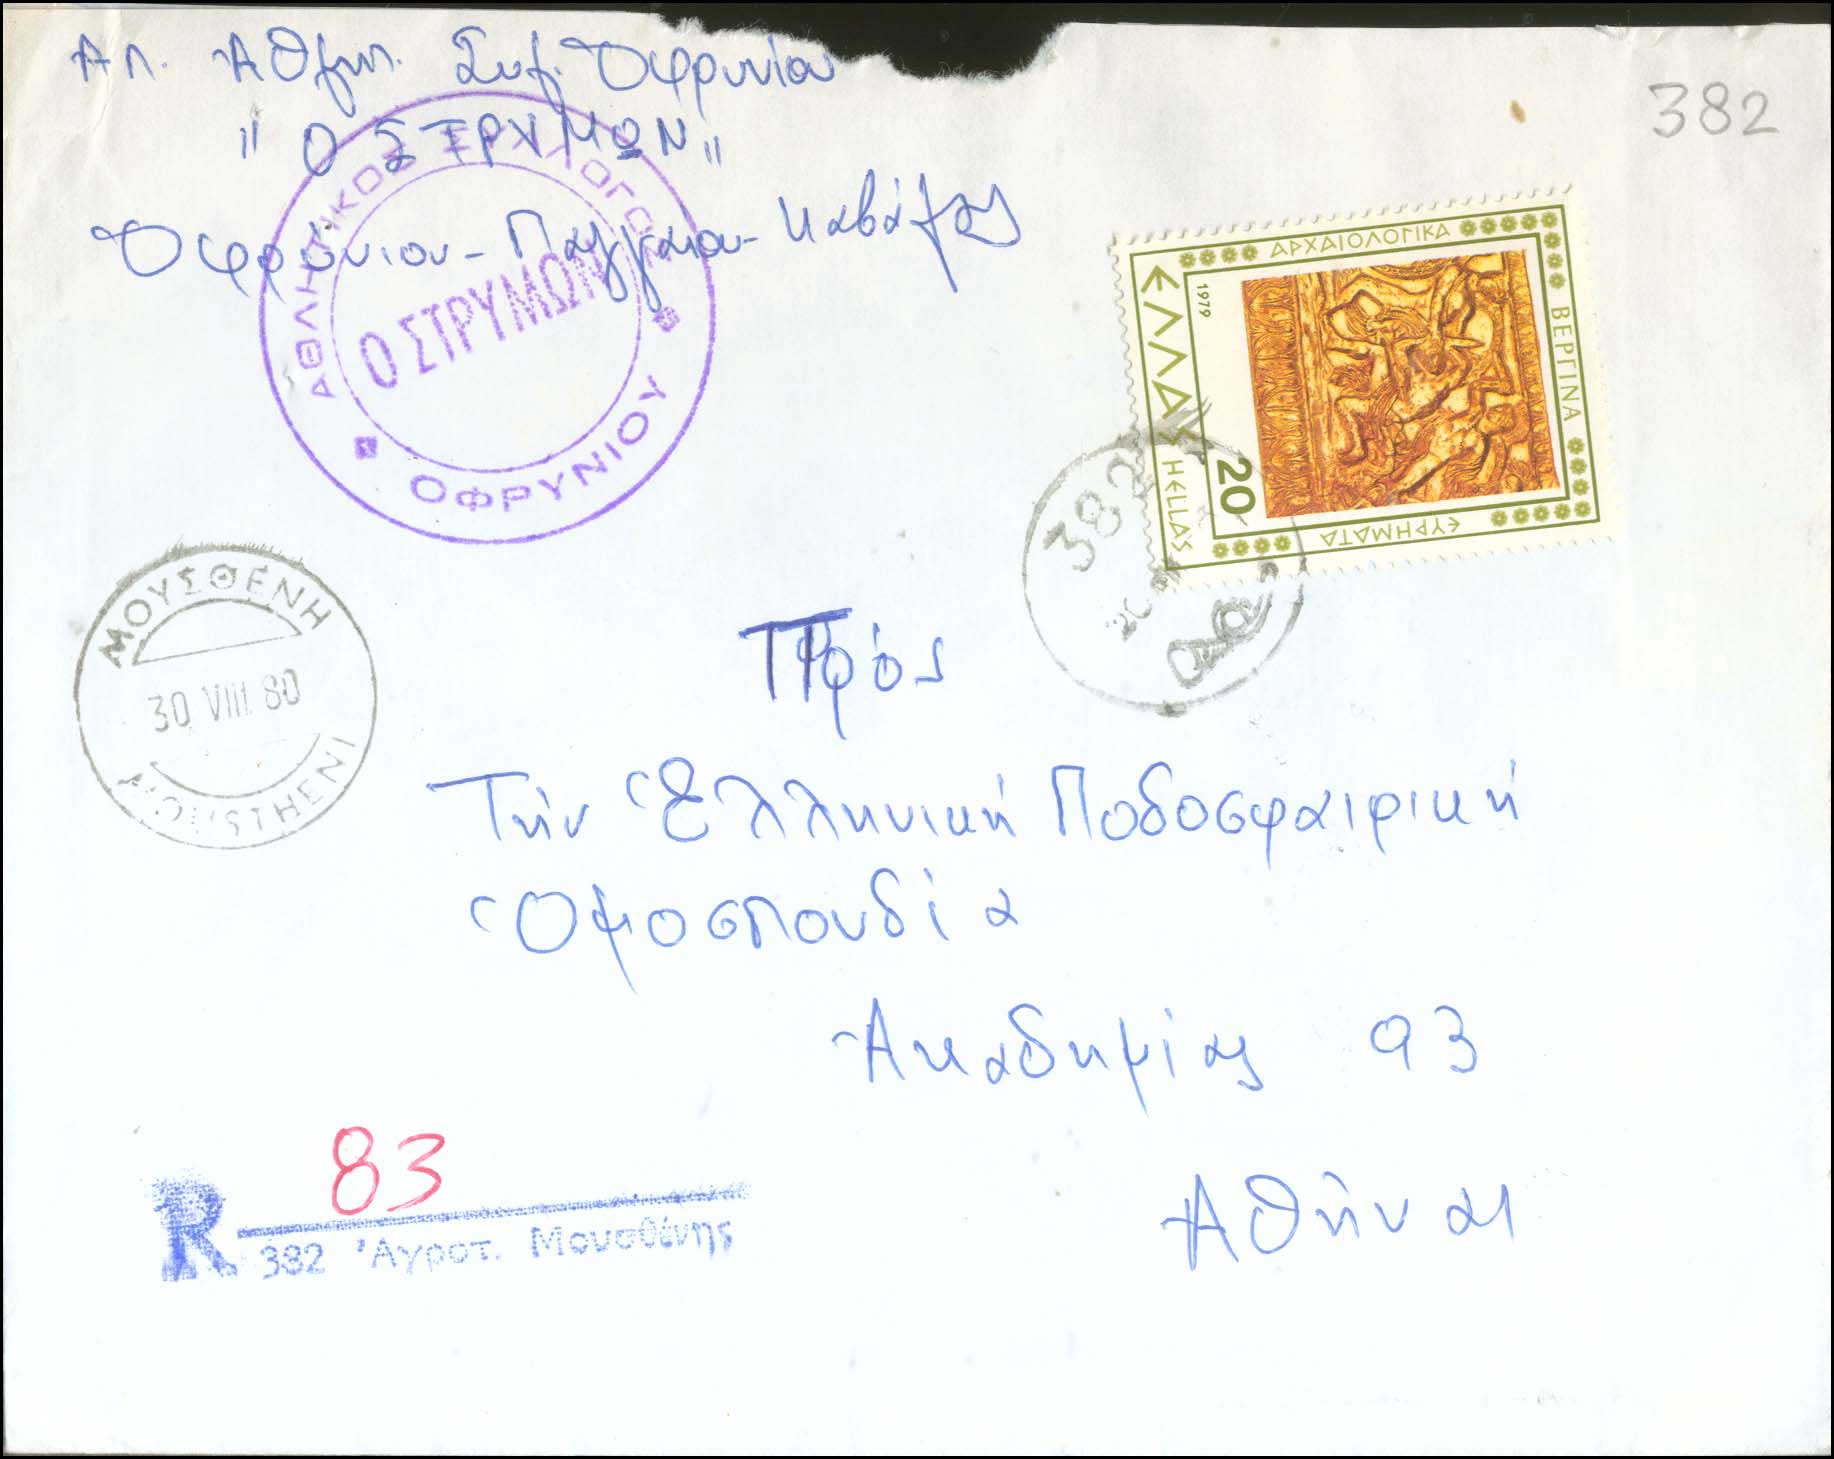 Απ. Αθλητ. Συλ. Οφρυνίου
"Ο ΣΤΡΥΜΩΝ"
Οφρύνιον - Παγγαίου - Καβάλας
382
ΑΘΛΗΤΙΚΟΣ ΣΥΛΛΟΓΟΣ
Ο ΣΤΡΥΜΩΝ
ΟΦΡΥΝΙΟΥ
ΑΡΧΑΙΟΛΟΓΙΚΑ
ΒΕΡΓΙΝΑ
ΕΥΡΗΜΑΤΑ
1979
ΕΛΛΑΣ HELLAS
20
382
ΜΟΥΣΘΕΝΗ
30 VIII 80
MOUSTHENI
Πρός
Τήν Ἑλληνική Ποδοσφαιρική
Ὁμοσπονδία
Ἀκαδημίας 93
Ἀθήναι
83
R
382 Ἀγροτ. Μουσθένης